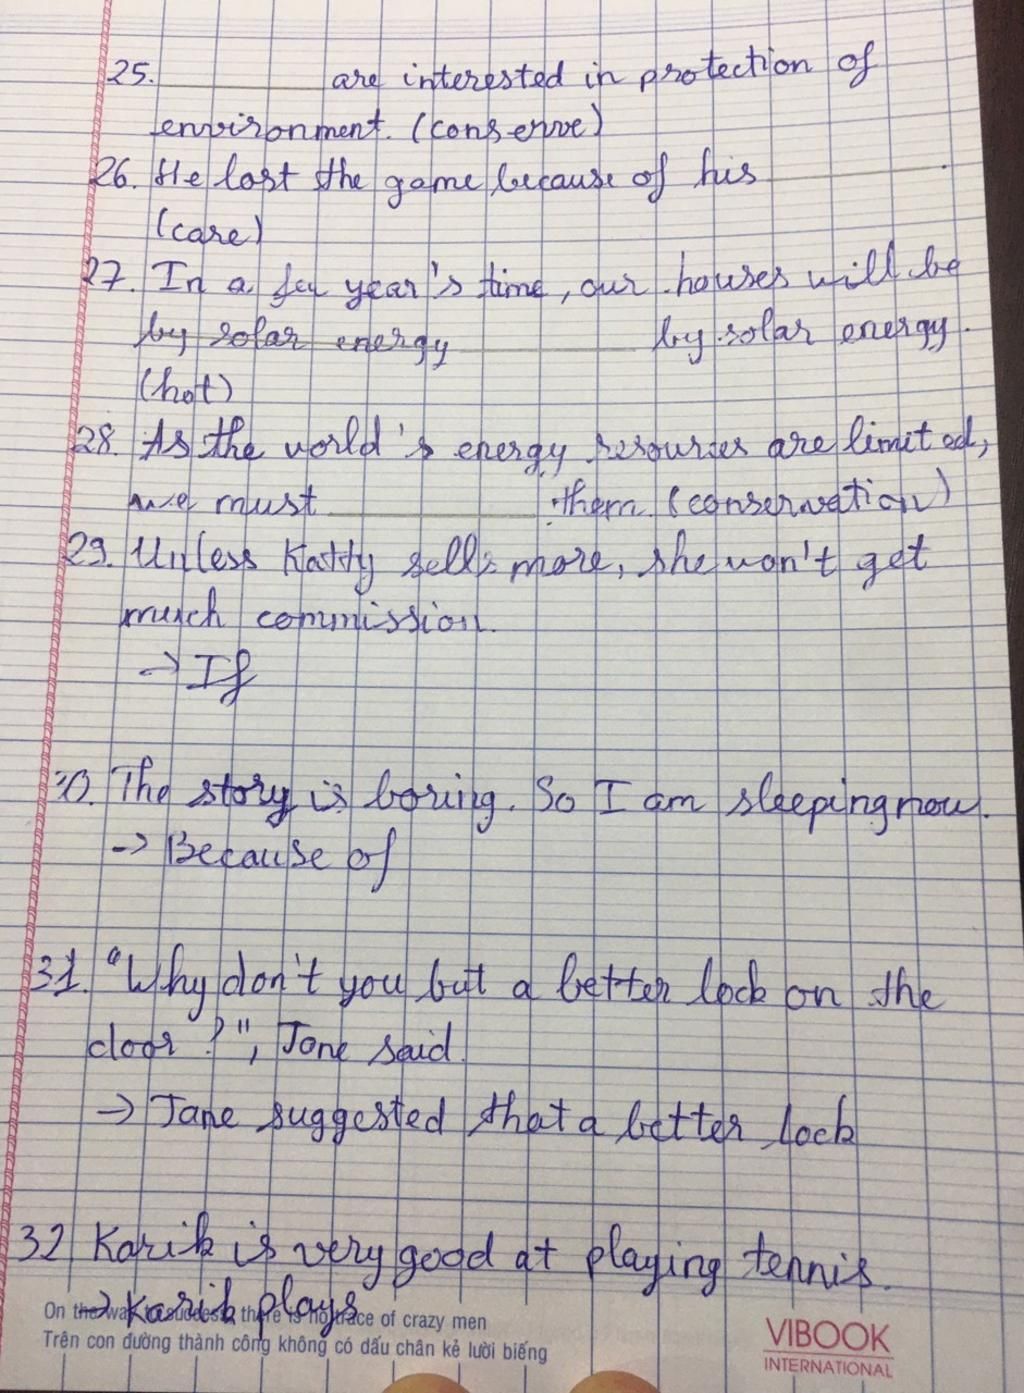 25. ______ are interested in protection of
environment. (conserve)
26. He lost the game because of his ______.
(care)
27. In a few year's time, our houses will be
by solar energy ______ by solar energy.
(hot)
28. As the world's energy resources are limited,
we must ______ them (conservation)
29. Unless Katty sells more, she won't get
much commission.
→ If
30. The story is boring. So I am sleeping now.
→ Because of
31. "Why don't you but a better lock on the
door?", Jane said.
→ Jane suggested that a better lock
32 Karik is very good at playing tennis.
→ Karik plays
On the way to success, there is no trace of crazy men
Trên con đường thành công không có dấu chân kẻ lười biếng
VIBOOK
INTERNATIONAL